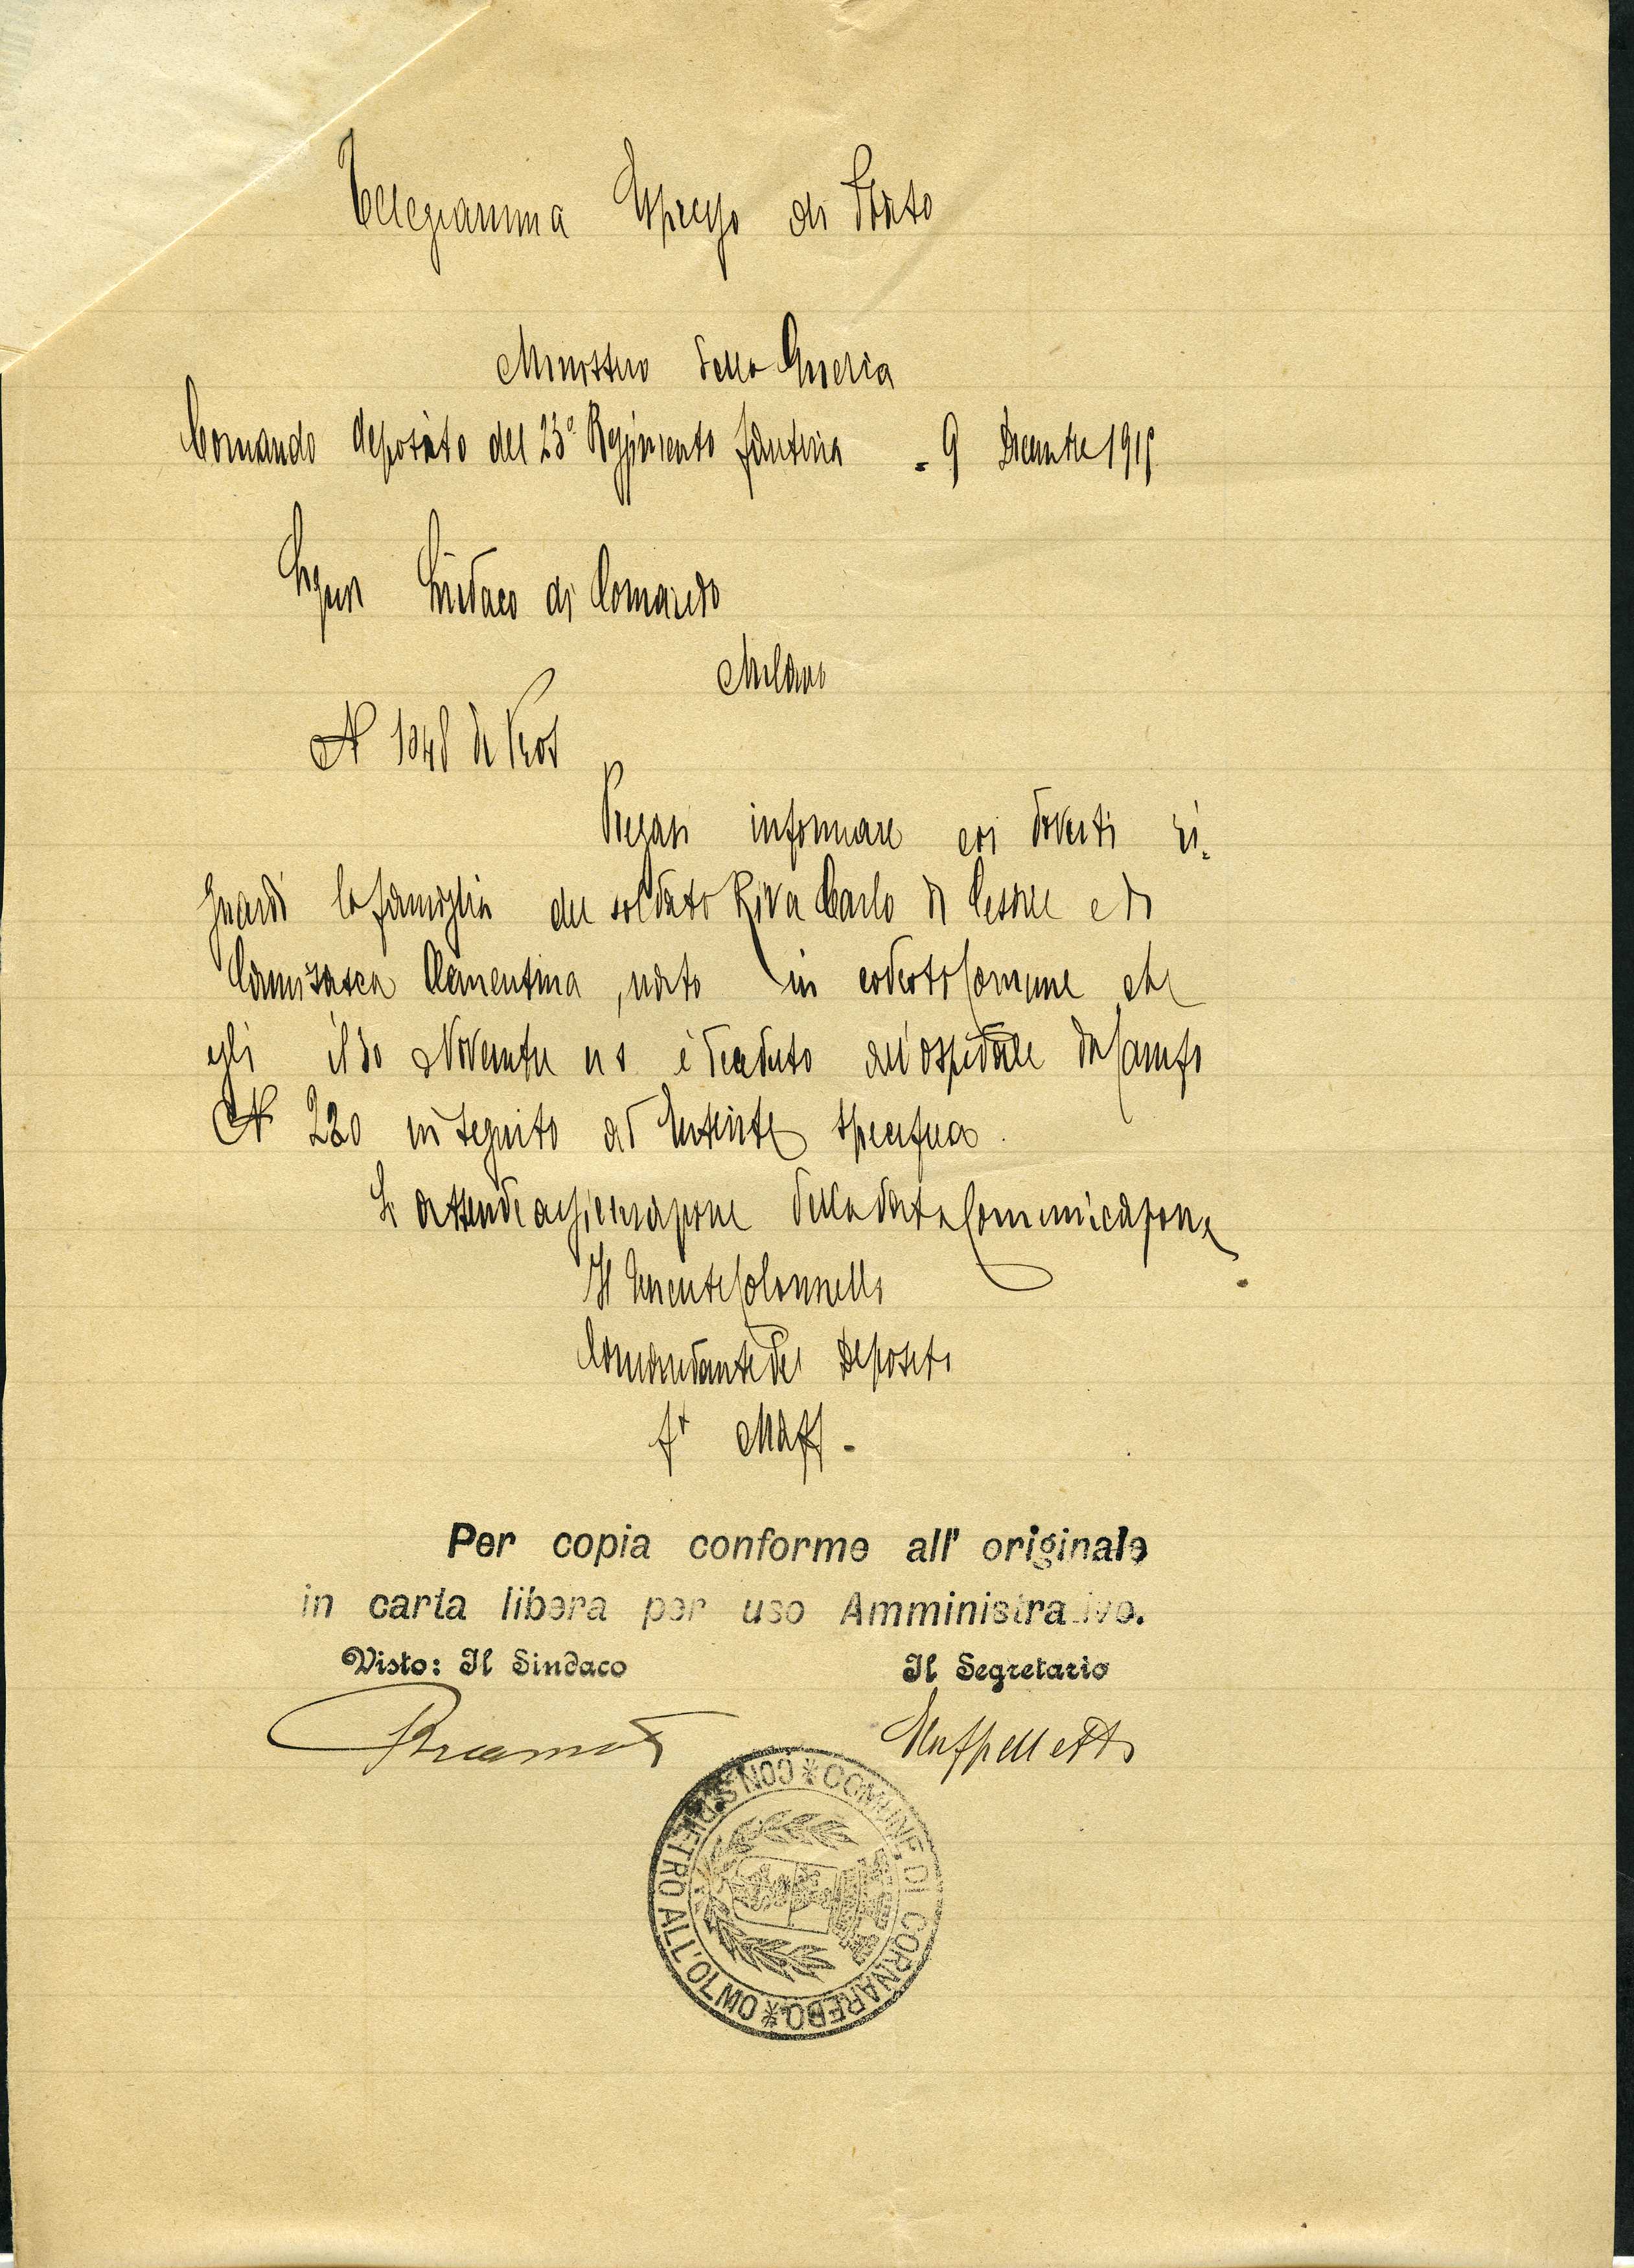 Telegramma Espresso di Stato
Ministero della Guerra
Comando deposito del 23° Reggimento fanteria = 9 Dicembre 1915
Signor Sindaco di Cornaredo
Milano
N 1048 di Prot
Pregasi informare coi dovuti ri=
guardi la famiglia del soldato Riva Carlo di Cesare e di
Camisasca Clementina, nato in codesto Comune che
egli il 30 Novembre u s è deceduto all'ospedale da Campo
N 230 in seguito ad enterite specifica.
Si attende assicurazione della data Comunicazione
Il Tenente Colonnello
Comandante del Deposito
fto Maffi -
Per copia conforme all' originale
in carta libera per uso Amministrativo.
Visto: Il Sindaco Il Segretario
COMUNE DI CORNAREDO * CON S. PIETRO ALL'OLMO *